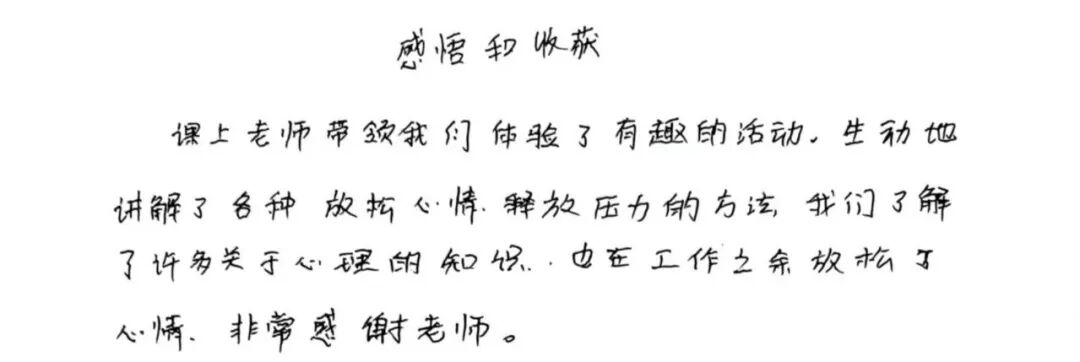 感悟和收获
课上老师带领我们体验了有趣的活动。生动地
讲解了各种放松心情、释放压力的方法,我们了解
了许多关于心理的知识、也在工作之余放松了
心情、非常感谢老师。